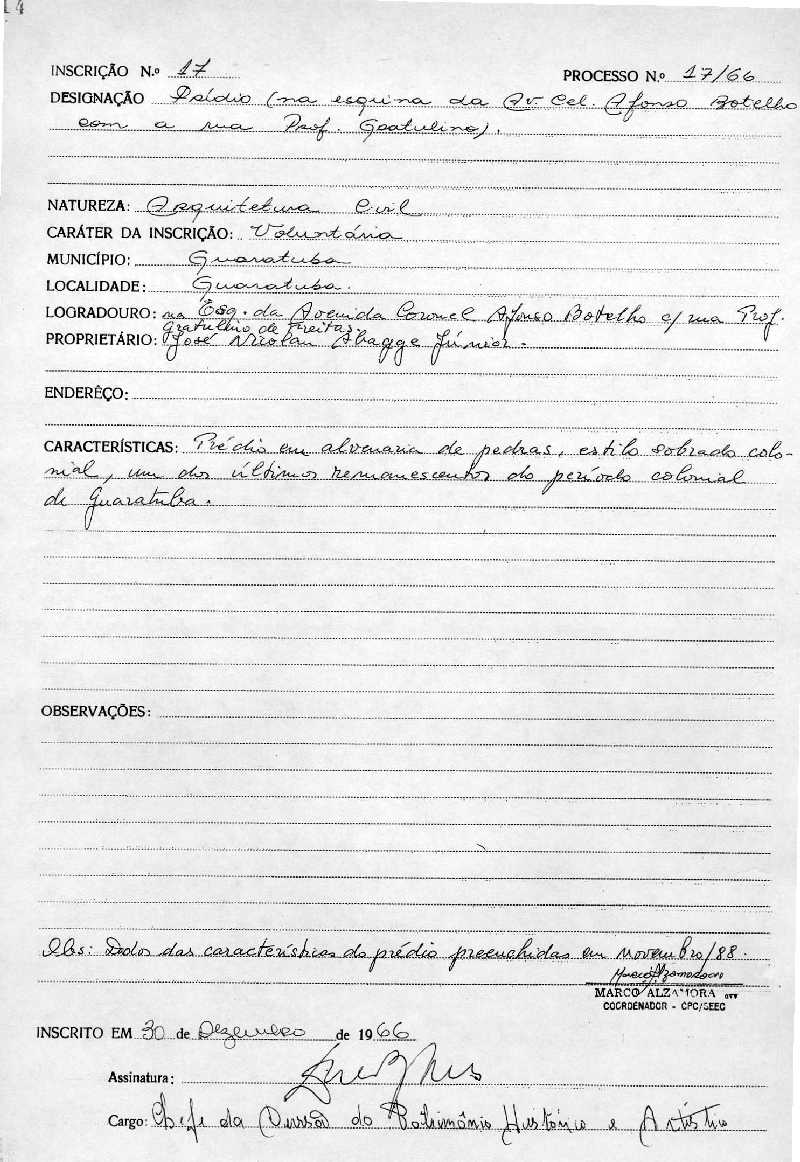 14
INSCRIÇÃO N.º 17 PROCESSO N.º 17/66
DESIGNAÇÃO Prédio (na esquina da Av. Cel. Afonso Botelho
com a rua Prof. Gratulino).
NATUREZA: Arquitetura Civil
CARÁTER DA INSCRIÇÃO: Voluntária
MUNICÍPIO: Guaratuba
LOCALIDADE: Guaratuba.
LOGRADOURO: na Esq. da Avenida Coronel Afonso Botelho c/ rua Prof.
Gratulino de Freitas.
PROPRIETÁRIO: José Nicolau Abagge Júnior.
ENDERÊÇO:
CARACTERÍSTICAS: Prédio em alvenaria de pedras, estilo sobrado colo-
nial, um dos últimos remanescentes do período colonial
de Guaratuba.
OBSERVAÇÕES:
Obs: Dados das características do prédio preenchidas em novembro/88.
MARCO ALZAMORA
COORDENADOR - CPC/SEEC
INSCRITO EM 30 de Dezembro de 1966
Assinatura:
Cargo: Chefe da Divisão do Patrimônio Histórico e Artístico